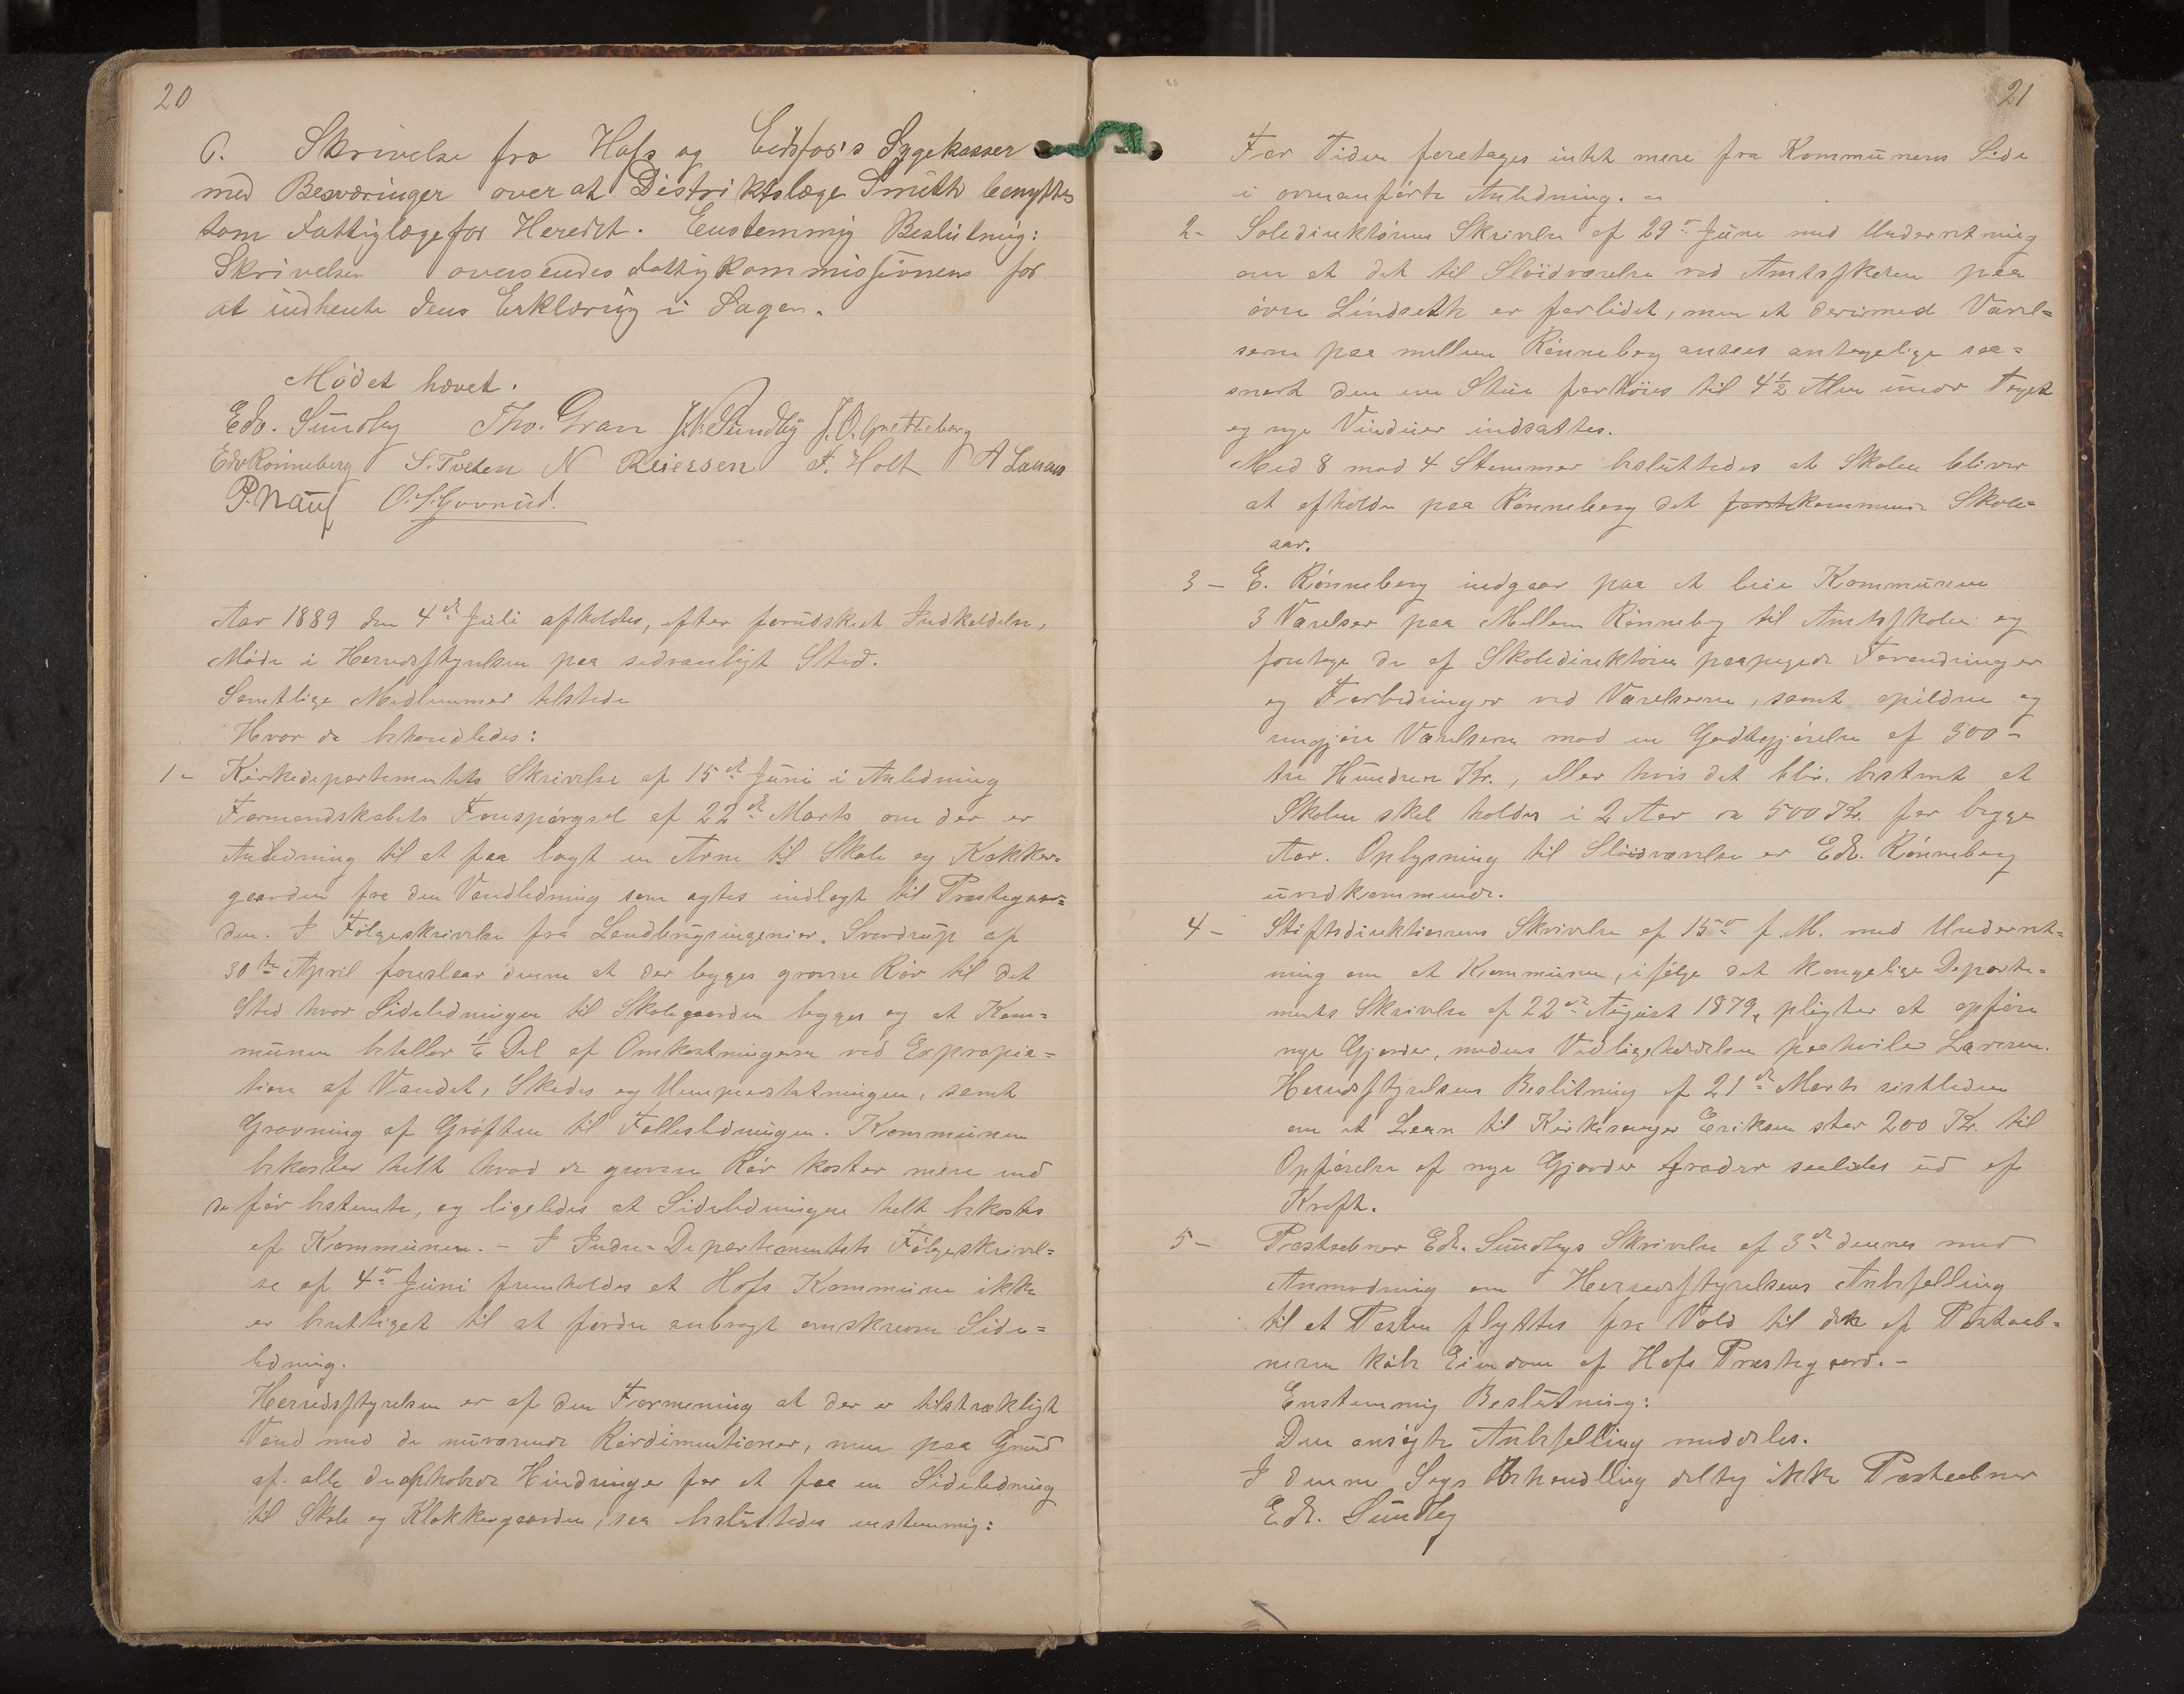 20
6. Skrivelse fra Hofs og Eidsfos's Sygekasser
med Besværinger over at Distriktslæge Smith benyttes
som Fattiglæge for Heredet. Enstemmig Beslutning:
Skrivelsen oversendes Fattigkommissionen for
at indhente dens Erklæring i Sagen.
Mødet hævet.
Edv. Sundby Tho. Gran J.N. Sundby J.O. Gretteberg
Edv Rønneberg S. Tveten N Reiersen F. Holt A
P. Nauf
Aar 1889 den 4de Juli afholdtes, efter forudskeet Indkaldelse,
Møde i Herredsstyrelsen paa sedvanligt Sted.
Samtlige Medlemmer tilstede
Hvor da behandledes:
1- Kirkedepartementets Skrivelse af 15de Juni i Anledning
Formandskabets Forespørgsel af 22de Marts om der er
Anledning til at faa lagt en Arm til Skole og Klokker-
gaarden fra den Vandledning som agtes indlagt til Præstegaar-
den. I Følgeskrivelse fra Landbrugsingeniør Sverdrup af
30te April foreslaar denne at der lægges grovere Rør til det
Sted hvor Sideledningen til Skolegaarden lægges og at Kom-
munen betaller 1/6 Del af Omkostningerne ved Expropia-
tion af Vandet, Skades og Ulempeerstatningen, samt
Gravning af Grøften til Fællesledningen. Kommunen
bekoster helt hvad de grovere Rør koster mere end
de før bestemte, og ligeledes at Sideledningen helt bekostes
af Kommunen. - I Indre-Departementets Følgeskrivel-
se af 4de Juni fremholdes at Hofs Kommune ikke
er berettiget til at fordre anbragt omskrevne Side-
ledning.
Herredsstyrelsen er af den Formening at der er tilstrækkligt
Vand med de nuværende Rørdimentioner, men paa Grund
af alle de ophobede Hindringer for at faa en Sideledning
til Skole og Klokkergaarden, saa besluttedes enstemmig:
21
For Tiden foretages intet mere fra Kommunens Side
i ovenanførte Anledning.
2- Skoledirektørens Skrivelse af 29de Juni med Underretning
om at det til Sløidværelse ved Amtsskolen paa
øvre Lindseth er forlidet, men at derimod Værel-
serne paa mellem Rønneberg ansees antagelige saa-
snart den ene Stue forhøies til 4½ Alen under Taget
og nye Vinduer indsættes.
Med 8 mod 4 Stemmer besluttedes at Skolen bliver
at afholde paa Rønneberg det førstkommende Skole-
aar.
3- E. Rønneberg indgaar paa at leie Kommunen
3 Værelser paa Mellem Rønneberg til Amtsskolen og
foretage de af Skoledirektøren paapegede Forandringer
og Forbedringer ved Værelserne, samt opildne og
rengjøre Værelserne mod en Godtgjørelse af 300-
tre Hundrere Kr., eller hvis det blir bestemt at
Skolen skal holdes i 2 Aar da 500 Kr. for begge
Aar. Oplysning til Sløidværelse er Edv. Rønneberg
uvedkommende.
4- Stiftsdirektionens Skrivelse af 15de f. M. med Underret-
ning om at Kommunen, ifølge det kongelige Departe-
ments Skrivelse af 22de August 1879, pligter at opføre
nye Gjærder, medens Vedligeholdelsen paahviler Læreren.
Herredsstyrelsens Beslutning af 21de Marts sistleden
om et Laan til Kirkesanger Eriksen stor 200 Kr. til
Opførelse af nye Gjærder træder saaledes ud af
Kraft.
5- Postaabner Edv. Sundbys Skrivelse af 3de dennes med
Anmodning om Herredsstyrelsens Anbefalling
til at Posten flyttes fra Vold til den af Postaab-
neren købte Eiendom af Hofs Præstegaard. -
Enstemmig Beslutning:
Den ansøgte Anbefalling meddeles.
I denne Sags Behandling deltog ikke Postaabner
Edv. Sundby